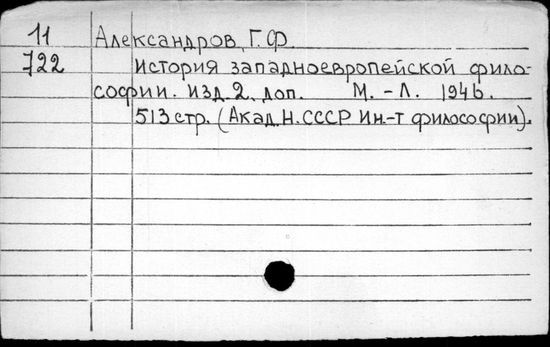 11 Александров, Г. Ф.
722 История западноевропейской фило-
софии. Изд. 2, доп. М. - Л. 1946.
513 стр. (Акад. Н. СССР Ин.-т философии).